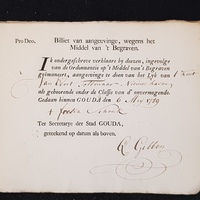 Pro Deo.
Billiet van aangeevinge, wegens het
Middel van 't Begraven.
IK ondergeschreve verklaare by dezen, ingevolge
van de Ordonnantie op 't Middel van 't Begraven
geëmaneert, aangevinge te doen van het Lyk van 't kint
Jan
als gehoorende onder de Classe van d' onvermogende.
Gedaan binnen GOUDA den 6 May 1759
Ter Secretarye der Stad GOUDA,
geteekend op datum als boven.